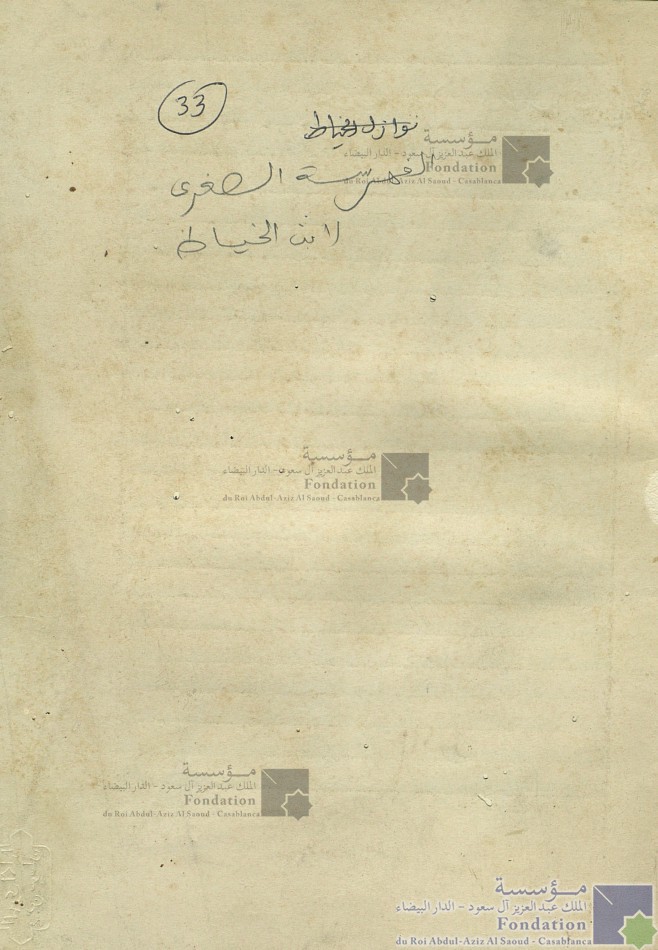 33
نوازل الخياط
الفهرسة الصغرى
لابن الخياط
مؤسسة
الملك عبد العزيز آل سعود - الدار البيضاء
Fondation
du Roi Abdul-Aziz Al Saoud - Casablanca
مؤسسة
الملك عبد العزيز آل سعود - الدار البيضاء
Fondation
du Roi Abdul-Aziz Al Saoud - Casablanca
مؤسسة
الملك عبد العزيز آل سعود - الدار البيضاء
Fondation
du Roi Abdul-Aziz Al Saoud - Casablanca
مؤسسة
الملك عبد العزيز آل سعود - الدار البيضاء
Fondation
du Roi Abdul-Aziz Al Saoud - Casablanca